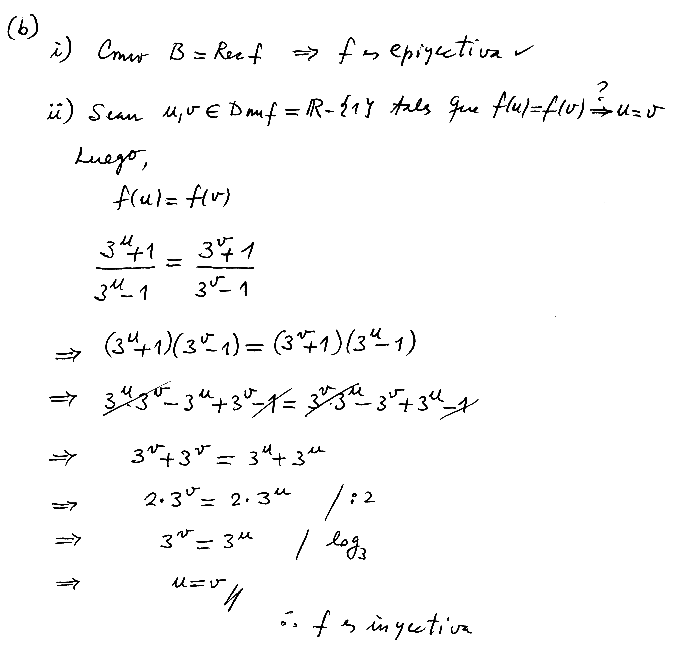 (b)
i) Como B = Rec f ⇒ f es epiyectiva ✓
ii) Sean u, v ∈ Dom f = ℝ - {1} tales que f(u) = f(v) ⇒? u = v
Luego,
f(u) = f(v)
(3^u + 1)/(3^u - 1) = (3^v + 1)/(3^v - 1)
⇒ (3^u + 1)(3^v - 1) = (3^v + 1)(3^u - 1)
⇒ 3^u · 3^v - 3^u + 3^v - 1 = 3^v · 3^u - 3^v + 3^u - 1
⇒ 3^v + 3^v = 3^u + 3^u
⇒ 2 · 3^v = 2 · 3^u / : 2
⇒ 3^v = 3^u / log₃
⇒ u = v //
∴ f es inyectiva